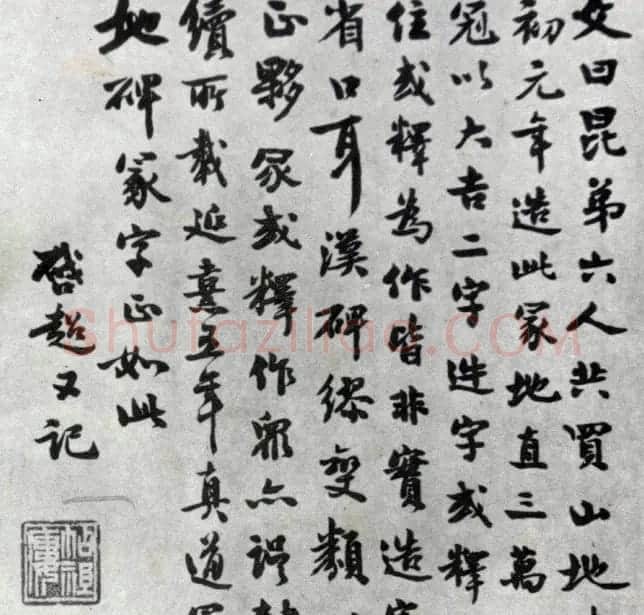 文曰昆弟六人共買山地
初元年造此冢地直三萬
冠以大吉二字造字或釋
住或釋為作皆非實造字
省口耳漢碑繆變類
正夥冢或釋作眾亦誤
續所載延熹五年真道冢
地碑冢字正如此
啓超又記
Shufaziliao.COM